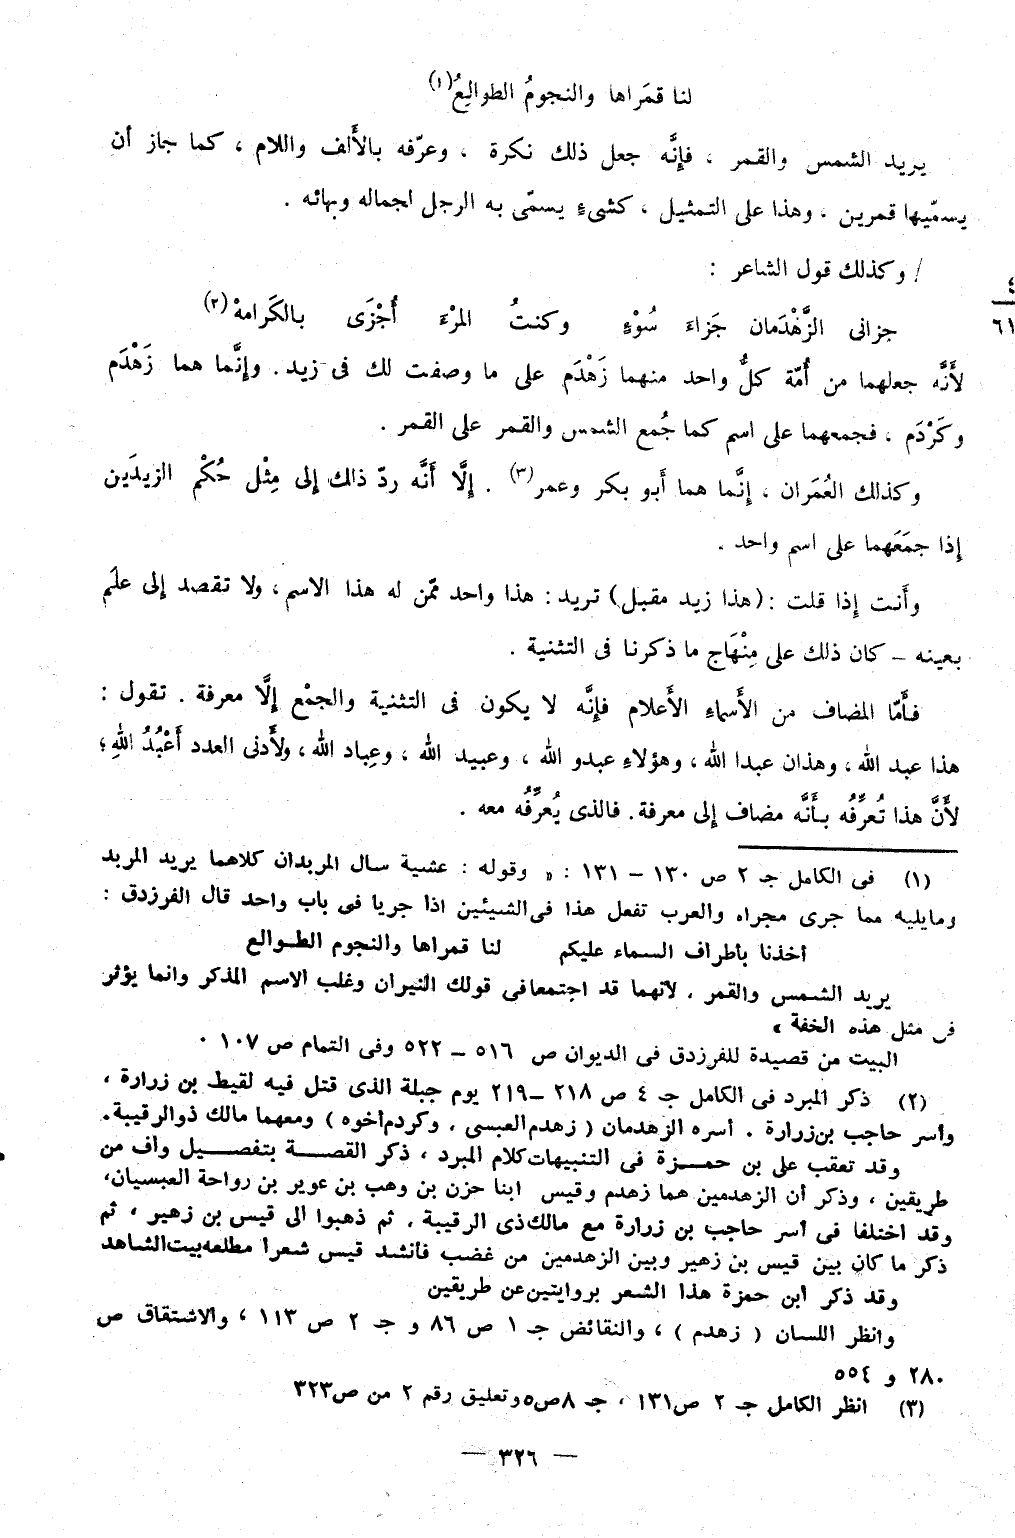 لنا قمَراها والنجومُ الطوالِعُ(١)
يريد الشمس والقمر ، فإِنَّه جعل ذلك نكرة ، وعرّفه بالأَلف واللام ، كما جاز أن
يسمّيها قمرين ، وهذا على التمثيل ، كشىءٍ يسمّى به الرجل لجماله وبهائه .
/ وكذلك قول الشاعر :
٤
٦١
جزانى الزَّهْدَمان جَزاءَ سُوْءٍ وكنتُ المرْءَ أُجْزَى بالكَرامهْ(٢)
لأَنَّه جعلهما من أُمّة كلُّ واحد منهما زَهْدَم على ما وصفت لك فى زيد . وإِنَّما هما زَهْدَم
وكَرْدَم ، فجمعهما على اسم كما جُمع الشمس والقمر على القمر .
وكذلك العُمَران ، إِنَّما هما أَبو بكر وعمر(٣) . إِلَّا أَنَّه ردّ ذلك إلى مِثْل حُكْم الزيدَين
إِذا جمَعَهما على اسم واحد .
وأَنت إِذا قلت : (هذا زيد مقبل) تريد : هذا واحد ممّن له هذا الاسم ، ولا تقصد إلى علَم
بعينه – كان ذلك على مِنْهَاج ما ذكرنا فى التثنية .
فأَمّا المضاف من الأَسماءِ الأَعلام فإِنَّه لا يكون فى التثنية والجمْع إِلَّا معرفة . تقول :
هذا عبد الله ، وهذان عبدا الله ، وهؤلاءِ عبدو الله ، وعبيد الله ، وعِباد الله ، ولأَدنى العدد أَعْبُدُ اللهِ ؛
لأَنَّ هذا تُعرِّفُه بأَنَّه مضاف إلى معرفة . فالذى يُعرِّفُه معه .
(١) فى الكامل جـ ٢ ص ١٣٠ – ١٣١ : « وقوله : عشية سال المربدان كلاهما يريد المربد
ومايليه مما جرى مجراه والعرب تفعل هذا فى الشيئين اذا جريا فى باب واحد قال الفرزدق :
أخذنا بأطراف السماء عليكم لنا قمراها والنجوم الطوالع
يريد الشمس والقمر ، لأنهما قد اجتمعا فى قولك النيران وغلب الاسم المذكر وانما يؤثر
فى مثل هذه الخفة »
البيت من قصيدة للفرزدق فى الديوان ص ٥١٦ – ٥٢٢ وفى التمام ص ١٠٧ .
(٢) ذكر المبرد فى الكامل جـ ٤ ص ٢١٨ – ٢١٩ يوم جبلة الذى قتل فيه لقيط بن زرارة ،
وأسر حاجب بن زرارة . أسره الزهدمان ( زهدم العبسى ، وكردم أخوه ) ومعهما مالك ذو الرقيبة .
وقد تعقب على بن حمزة فى التنبيهات كلام المبرد ، ذكر القصة بتفصيل واف من
طريقين ، وذكر أن الزهدمين هما زهدم وقيس ابنا حزن بن وهب بن عوير بن رواحة العبسيان،
وقد اختلفا فى أسر حاجب بن زرارة مع مالك ذى الرقيبة . ثم ذهبوا الى قيس بن زهير ، ثم
ذكر ما كان بين قيس بن زهير وبين الزهدمين من غضب فأنشد قيس شعرا مطلعه بيت الشاهد
وقد ذكر ابن حمزة هذا الشعر بروايتين عن طريقين
وانظر اللسان ( زهدم ) ، والنقائض جـ ١ ص ٨٦ و جـ ٢ ص ١١٣ ، والاشتقاق ص
٢٨٠ و ٥٥٤
(٣) انظر الكامل جـ ٢ ص ١٣١ ، جـ ٨ ص ٥ وتعليق رقم ٢ من ص ٣٢٣
— ٣٢٦ —